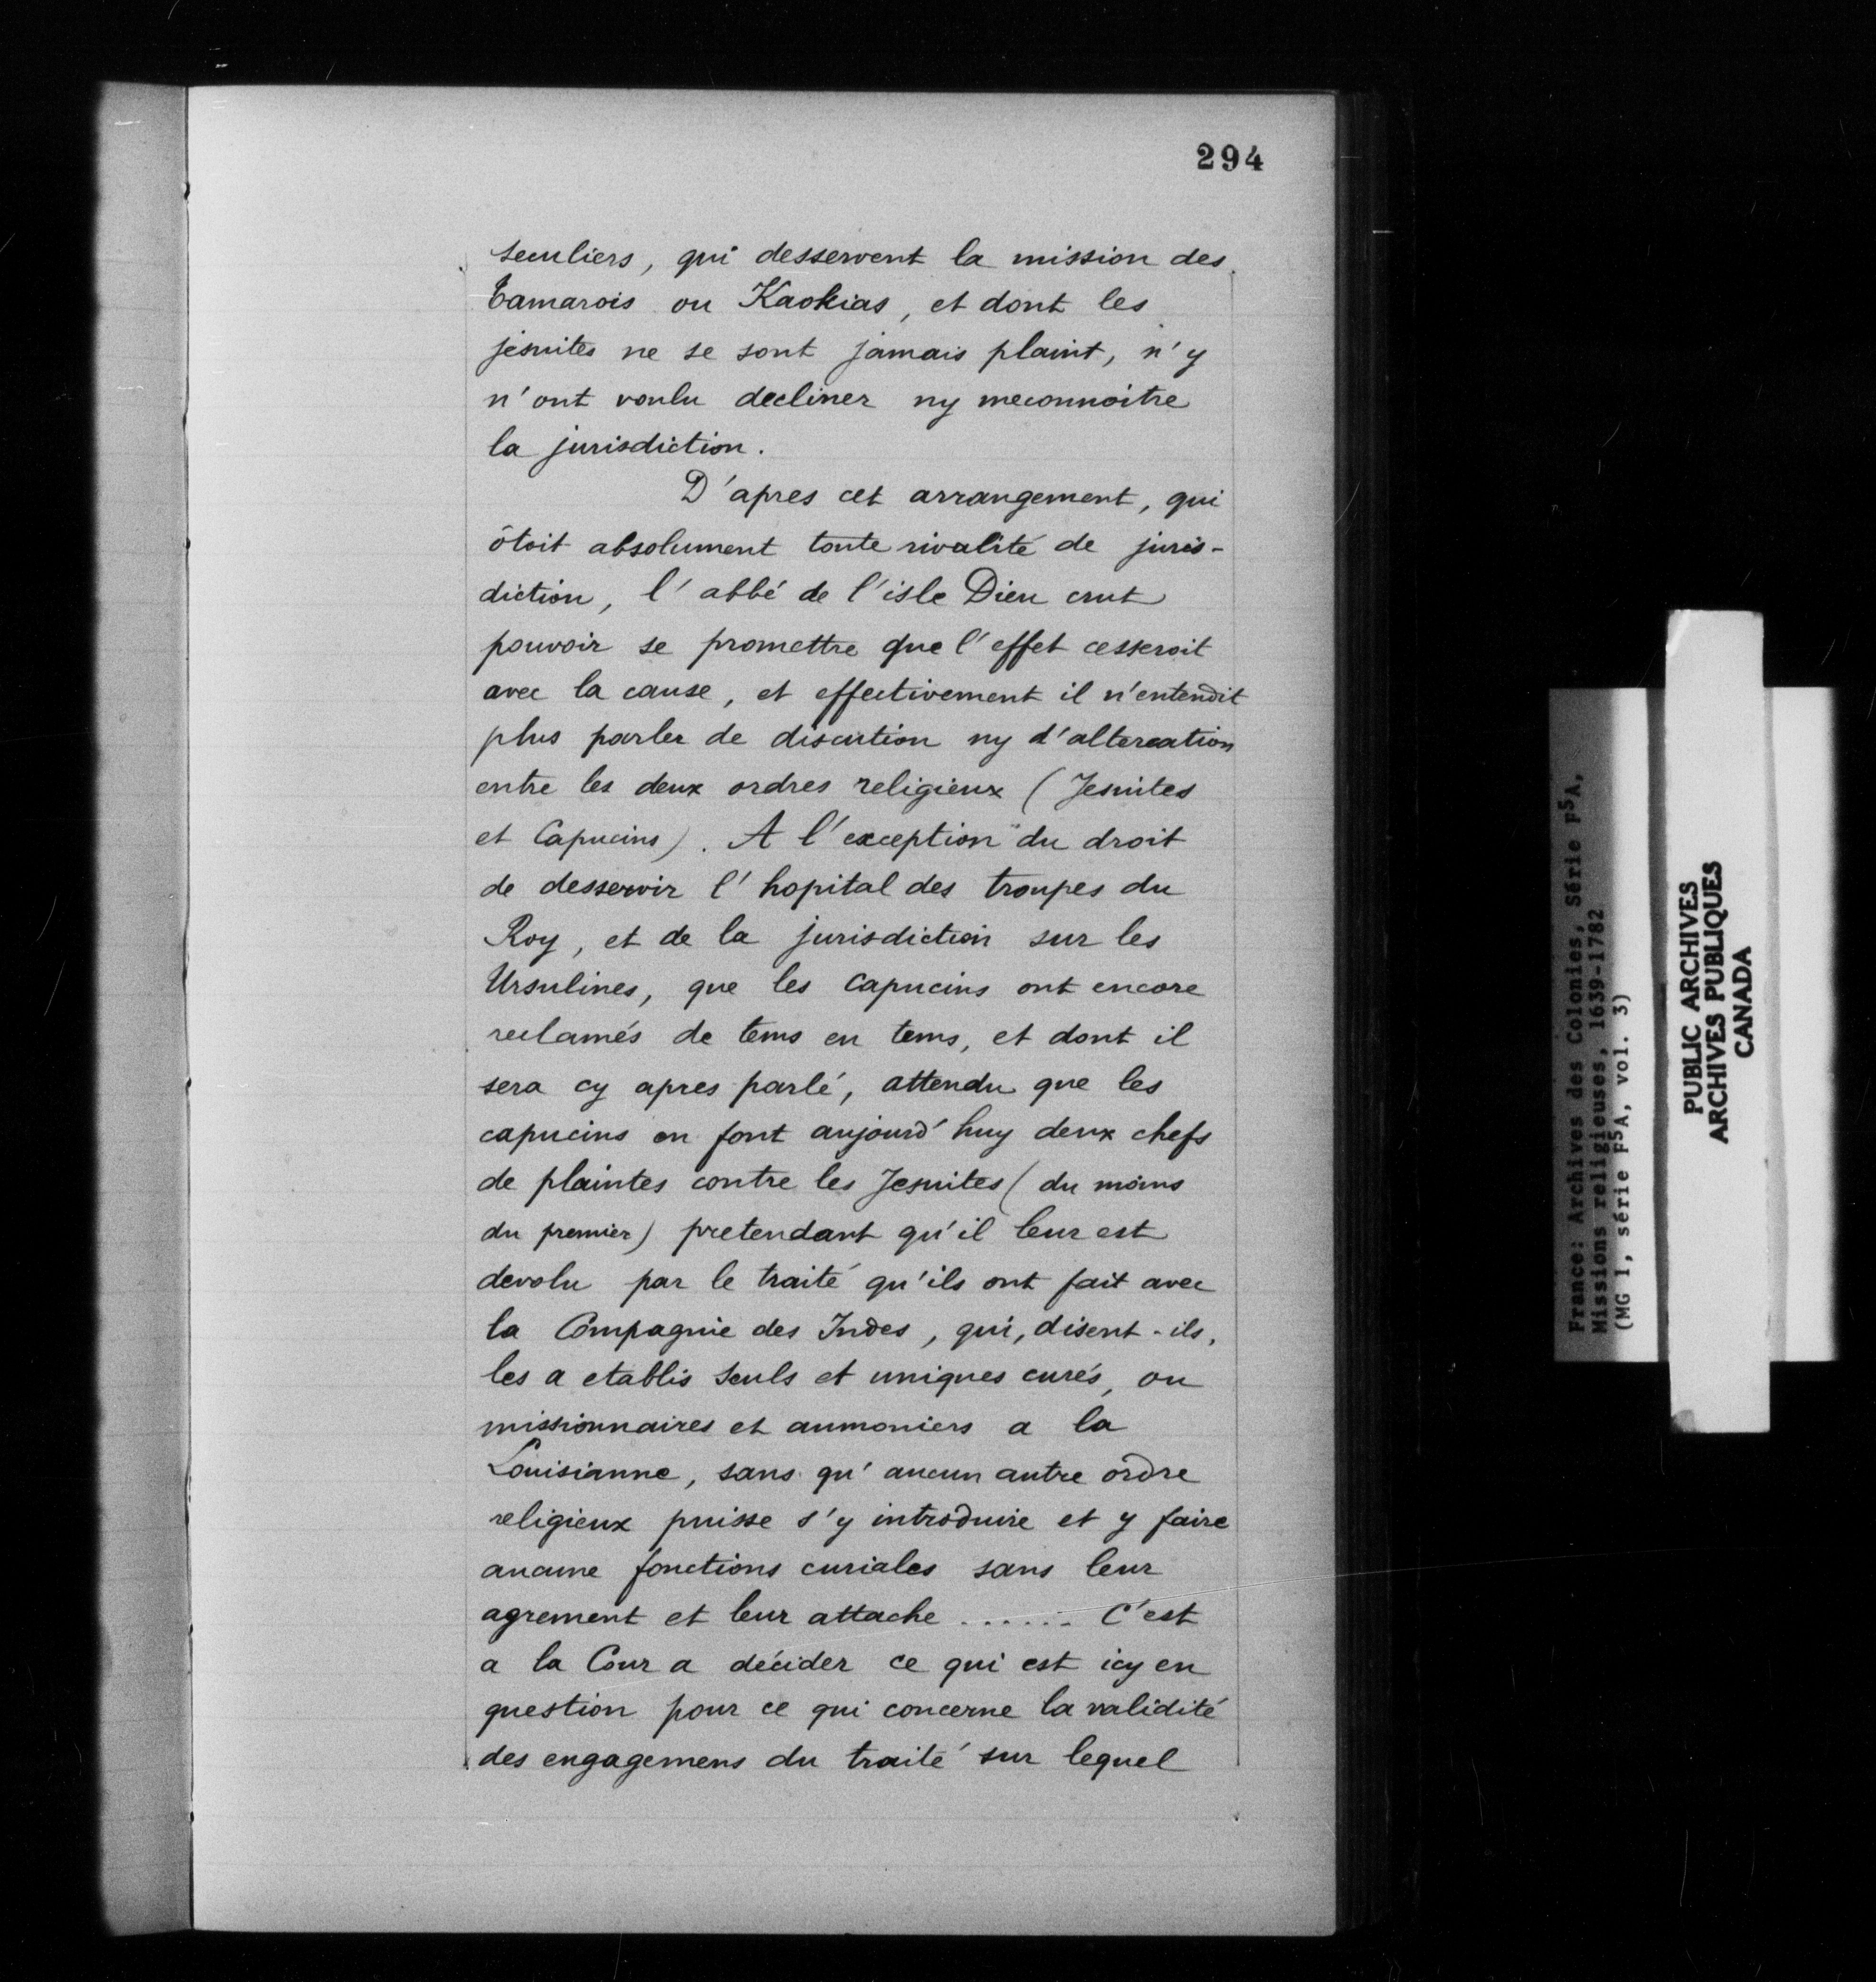 294
seculiers, qui desservent la mission des
Tamarois ou Kaokias, et dont les
jesuites ne se sont jamais plaint, n'y
n'ont voulu decliner ny meconnoitre
la jurisdiction.
D'apres cet arrangement, qui
ôtoit absolument toute rivalité de juris-
diction, l'abbé de l'isle Dieu crut
pouvoir se promettre que l'effet cesseroit
avec la cause, et effectivement il n'entendit
plus parler de discution ny d'altercation
entre les deux ordres religieux (Jesuites
et Capucins). A l'exception du droit
de desservir l'hopital des troupes du
Roy, et de la jurisdiction sur les
Ursulines, que les capucins ont encore
reclamés de tems en tems, et dont il
sera cy apres parlé, attendu que les
capucins en font aujourd'huy deux chefs
de plaintes contre les Jesuites (du moins
du premier) pretendant qu'il leur est
devolu par le traité qu'ils ont fait avec
la Compagnie des Indes, qui, disent-ils,
les a etablis seuls et uniques curés, ou
missionnaires et aumoniers a la
Louisianne, sans qu'aucun autre ordre
religieux puisse s'y introduire et y faire
aucune fonctions curiales sans leur
agrement et leur attache ...... C'est
a la Cour a décider ce qui est icy en
question pour ce qui concerne la validité
des engagemens du traité sur lequel
France: Archives des Colonies, Série F5A,
Missions religieuses, 1639-1782
(MG 1, série F5A, vol. 3)
PUBLIC ARCHIVES
ARCHIVES PUBLIQUES
CANADA